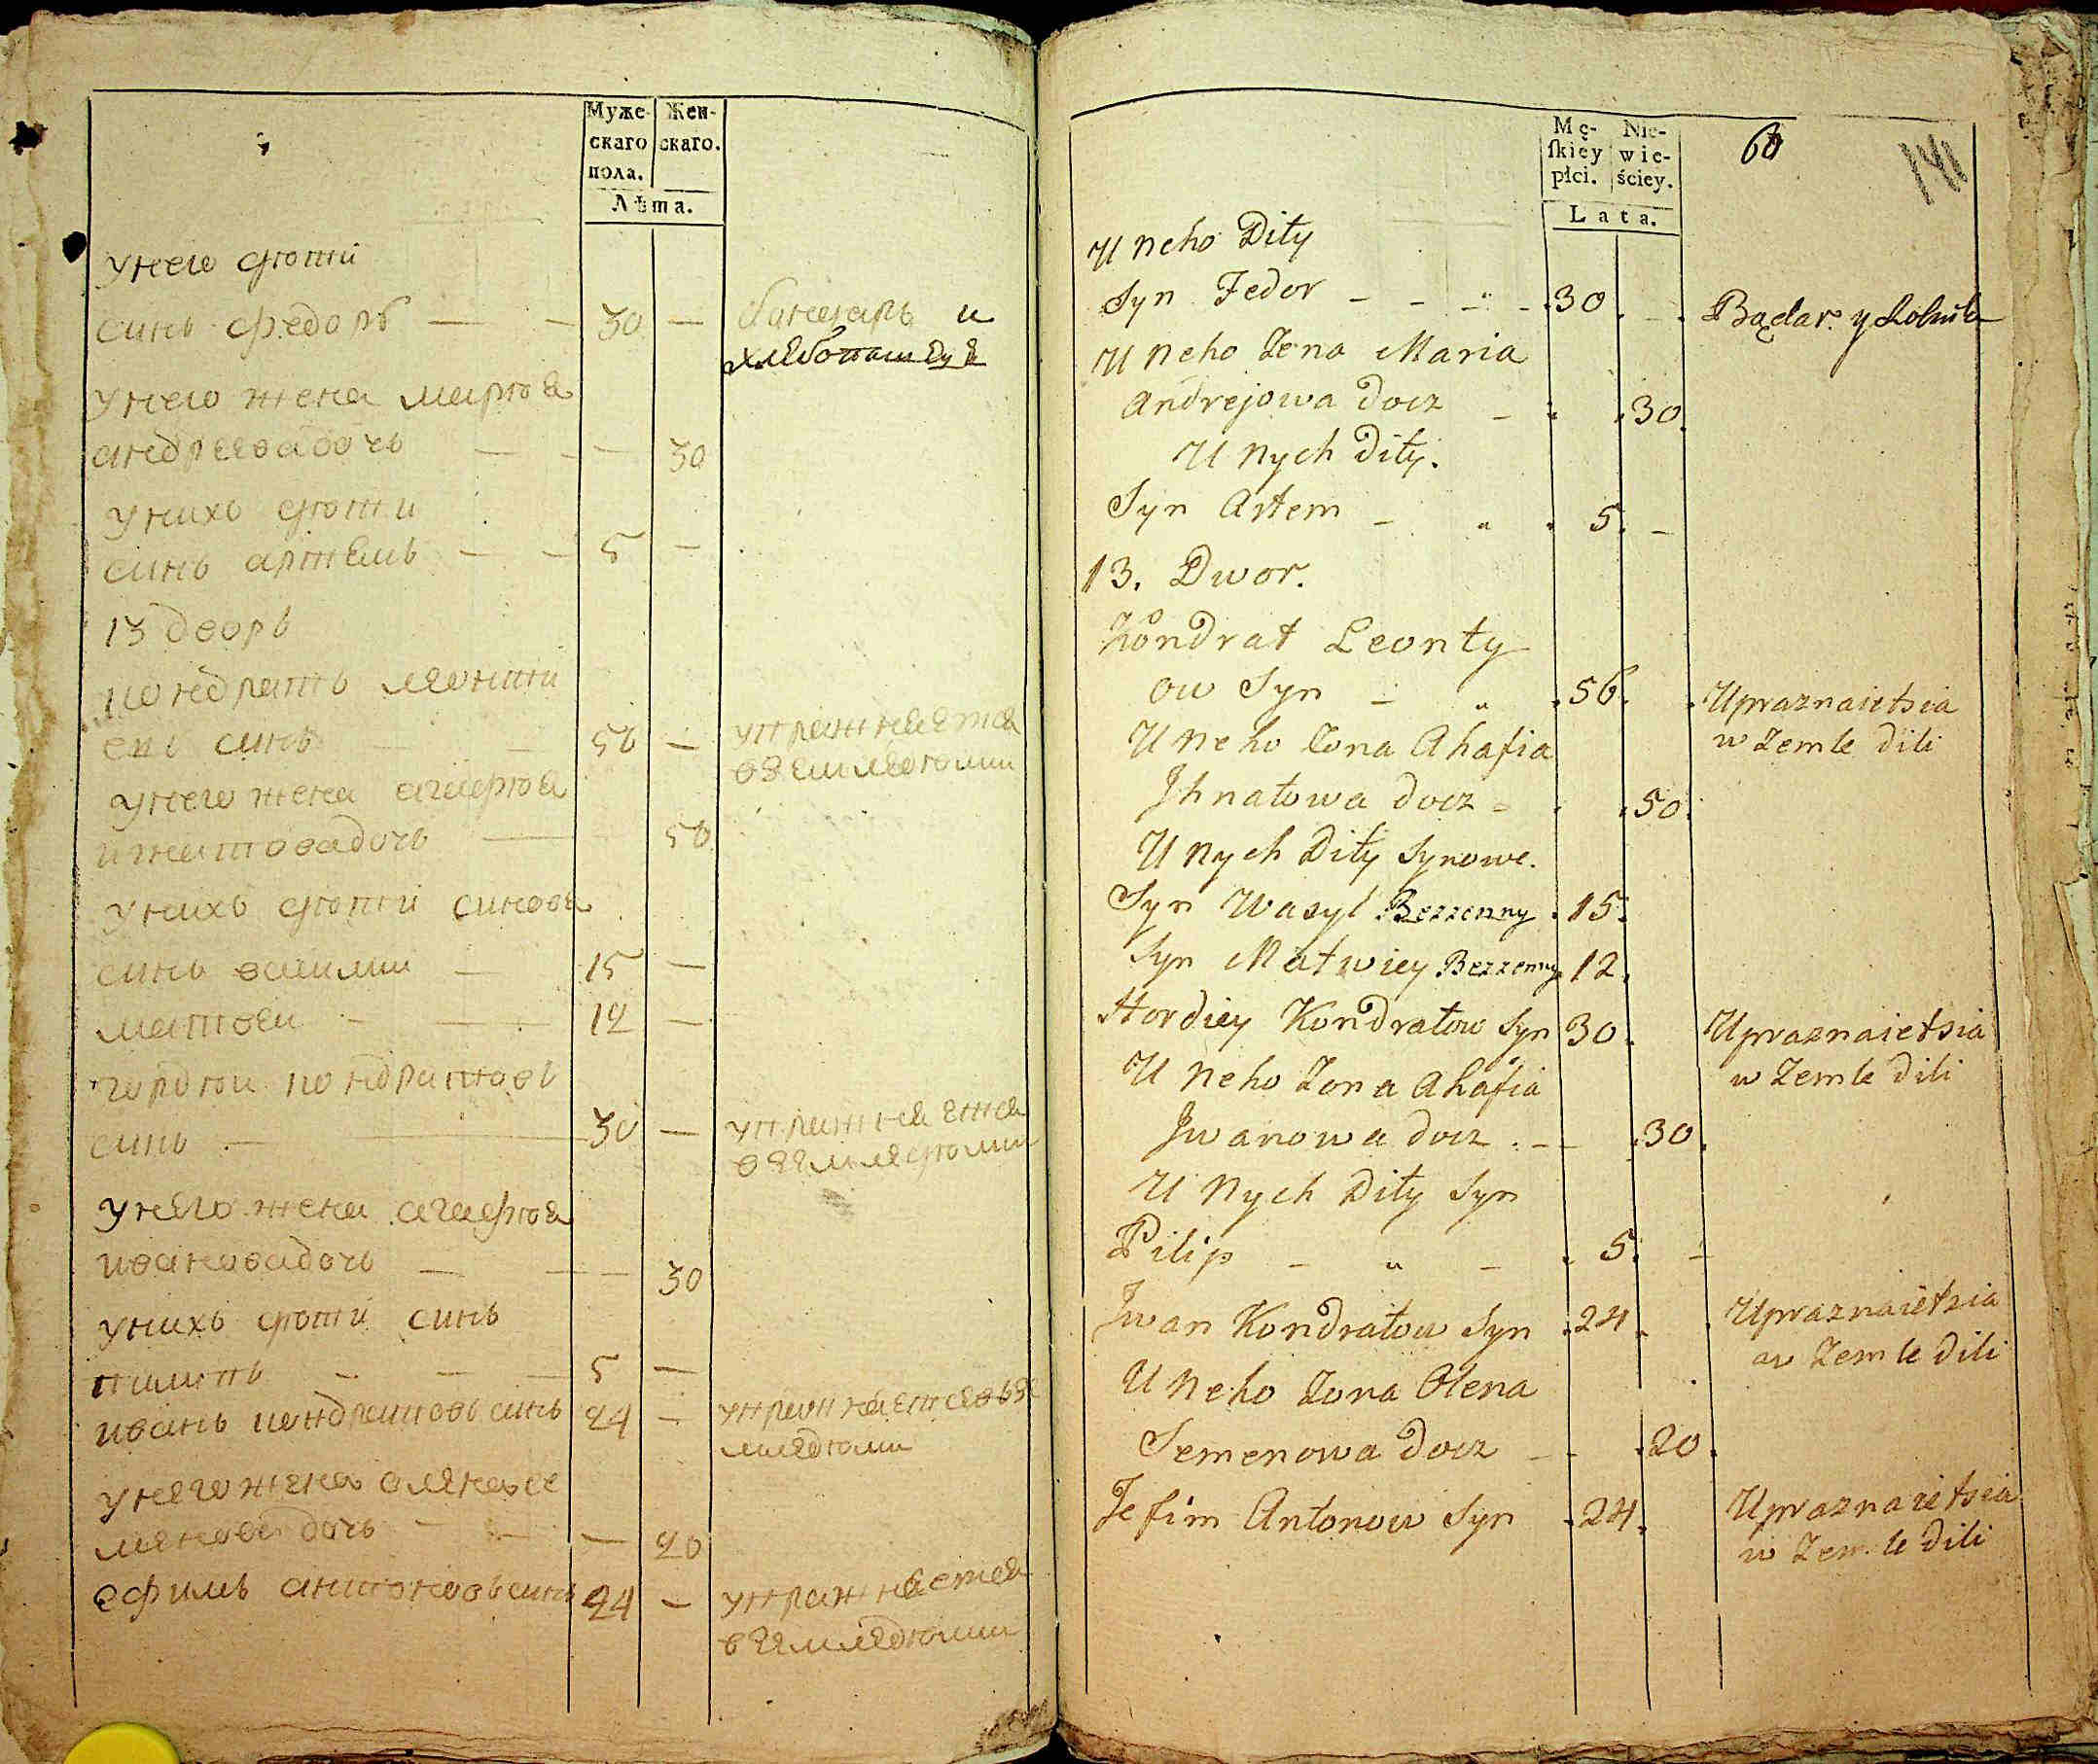 Муже-
скаго
пола.
Жен-
скаго.
Лѣта.
унего дюти
синь федоръ — — 30 —
бондарь и
хлебопашец
унего жена мария
андреева дочь — — — 30
унихъ дюти
синь артемъ — — 5 —
13 дворъ
кондратъ леонти
евъ синъ — — 56 —
упражняется
в земледюлии
унего жена агафюя
игнатова дочь — 50
унихъ дюти синовя
синь василии — 15 —
матвеи — — 12 —
гордюи кондратювъ
синь — — 30 —
упражняется
в земледюлии
унего жена агафюя
иванова дочь — — — 30
унихъ дюти синъ
пилипъ — — — 5 —
иванъ кондратовъ синъ 24 —
упражняется в зе
мледюлии
унего жена олена се
менова дочь — — — 20
ефимъ антоновъ синъ 24 —
упражняется
в земледюлии
Mę-
ſkiey
płci.
Nie-
wie-
ściey.
Lata.
60
141
U neho Dity
Syn Fedor - - - - 30. - .
Bądar. y Rolnik
U neho Zena Maria
Andrejowa docz - . 30.
U nych dity.
Syn Artem - . 5. -
13. Dwor.
Kondrat Leonty
ow Syn - . 56.
Upraznaietsia
w Zemle dili
U neho Zona Ahafia
Ihnatowa docz - . 50.
U nych Dity Synowe.
Syn Wasyl Bezzenny . 15.
Syn Matwiey Bezzenny 12.
Hordiey Kondratow Syn 30.
Upraznaietsia
w Zemle dili
U neho Zona Ahafia
Iwanowa docz . - - . 30.
U Nych Dity Syn
Pilip - " - . 5. -
Iwan Kondratow Syn . 24.
Upraznaietsia
w Zemle dili
U neho Zona Olena
Semenowa docz - - . 20.
Jefim Antonow Syn . 24.
Upraznaietsia
w Zemle dili